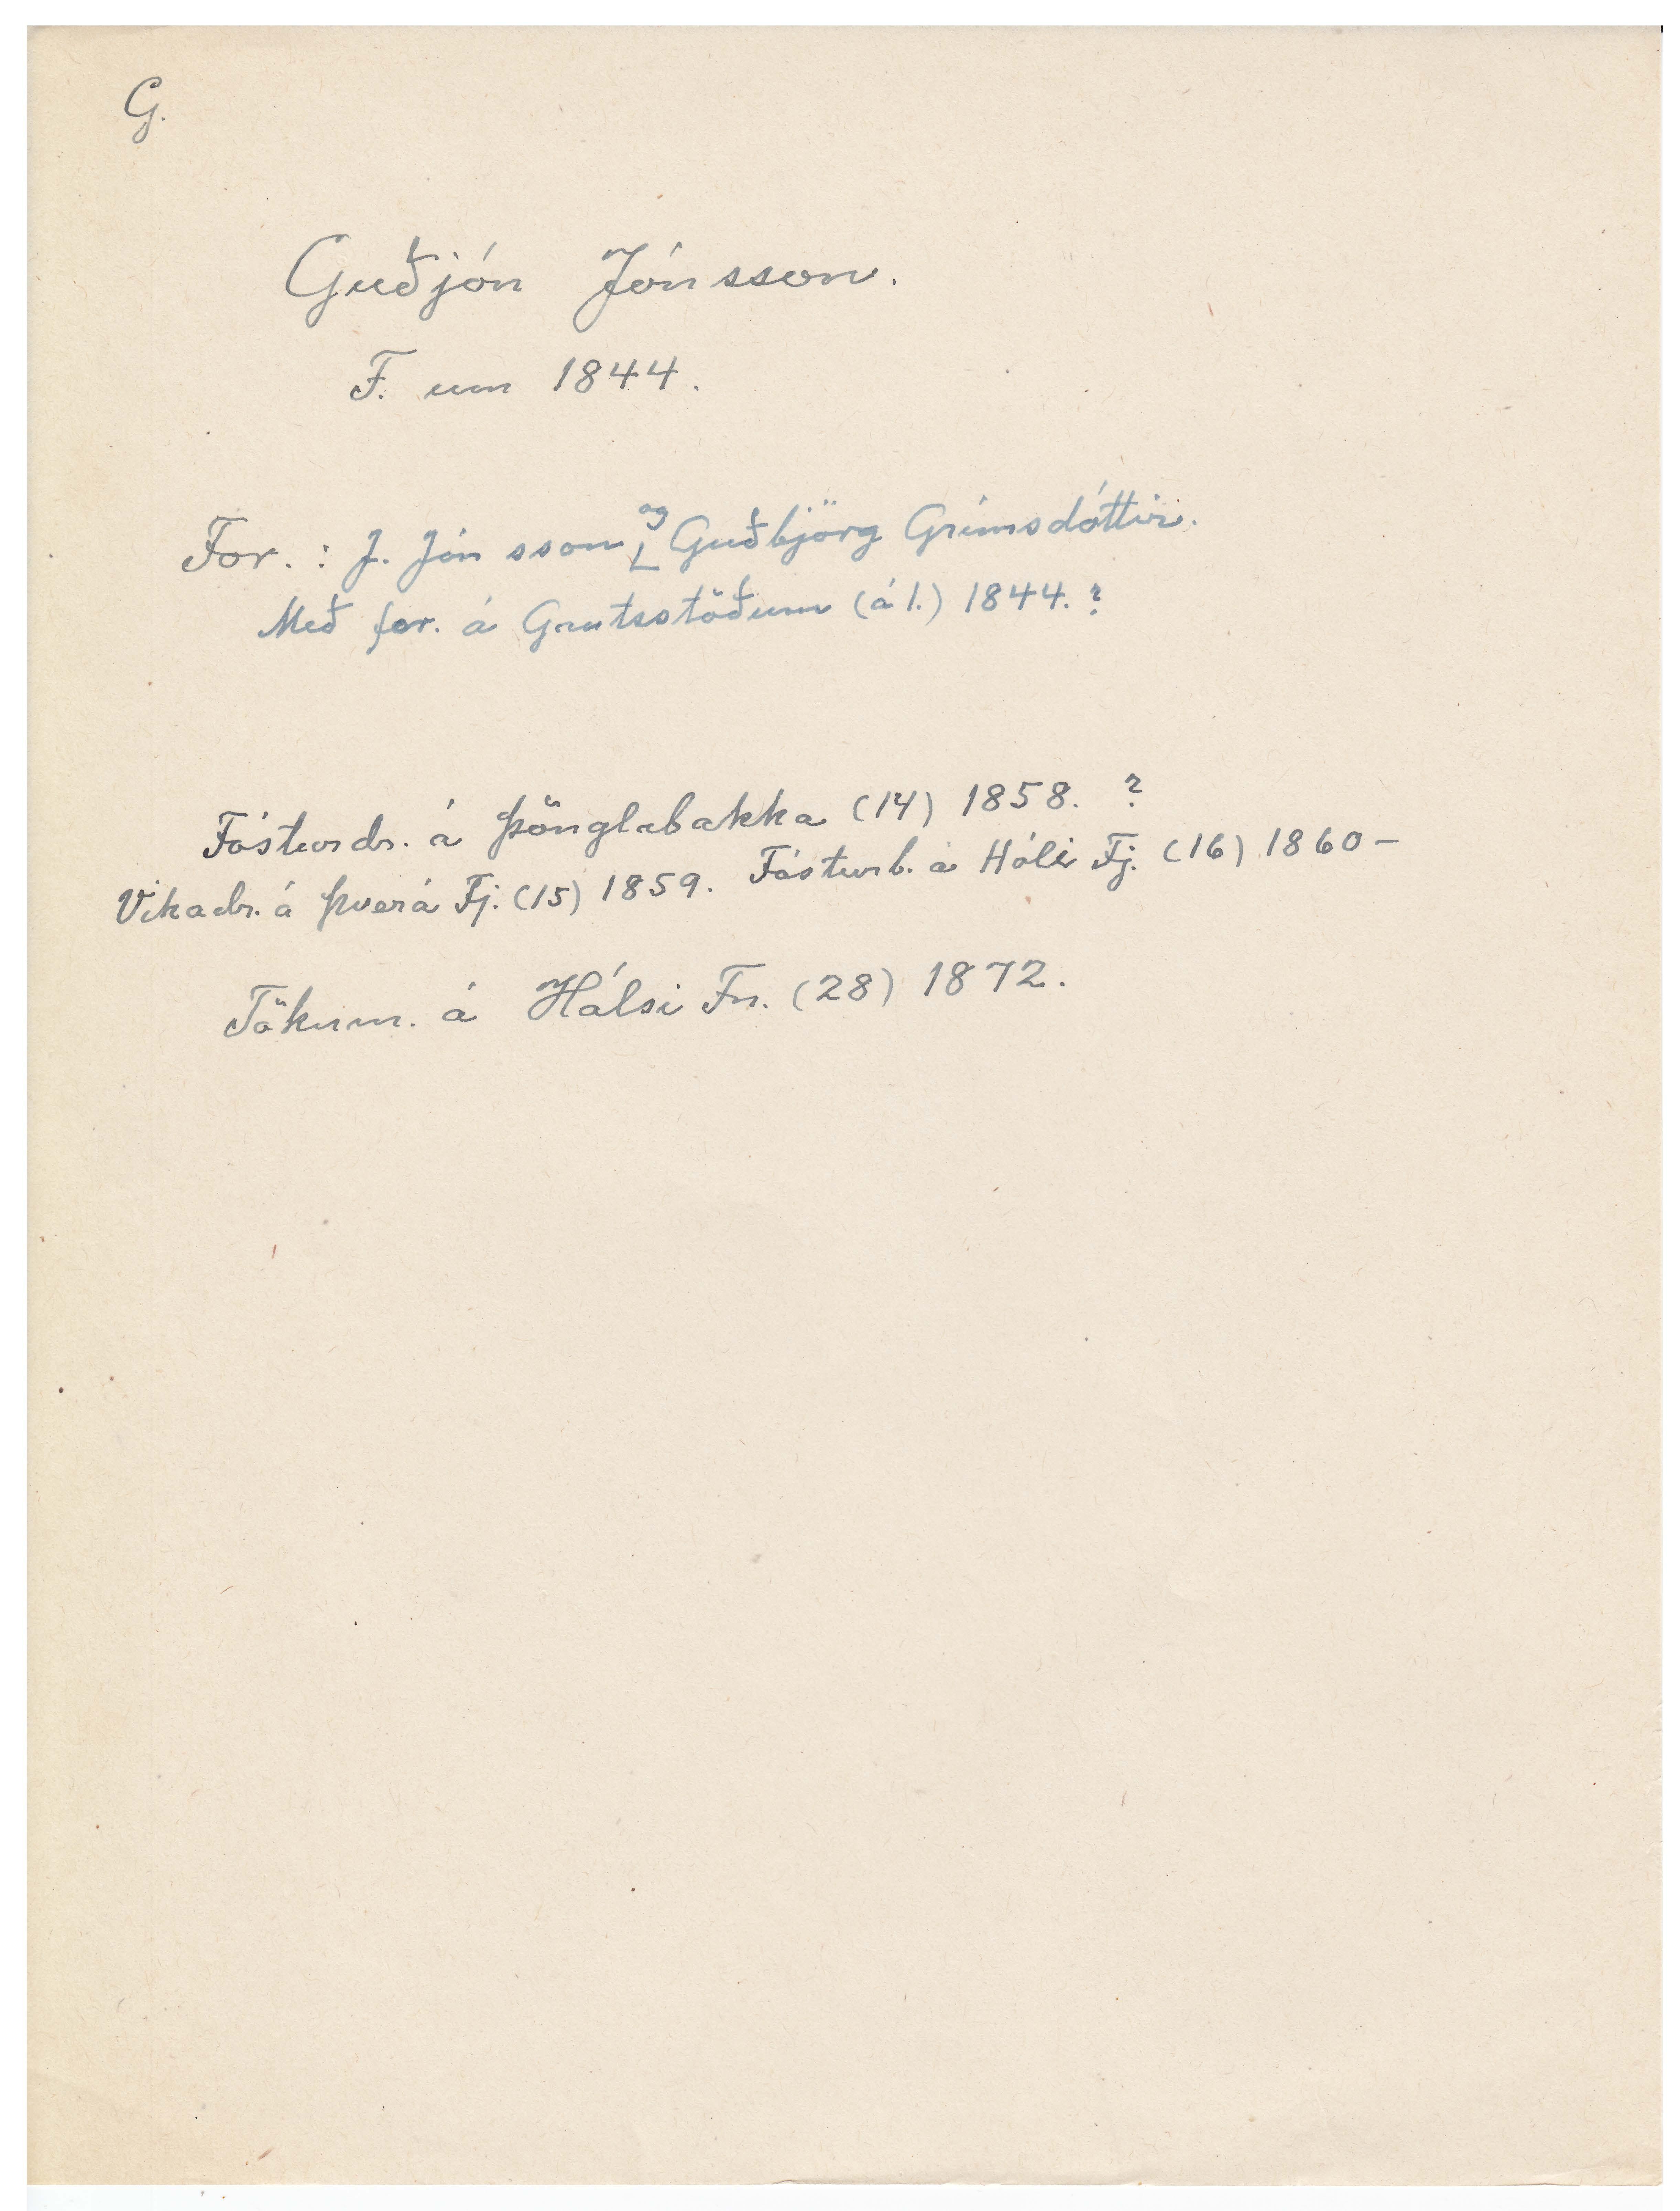 G.
Guðjón Jónsson.
F. um 1844.
For.: J. Jónsson og Guðbjörg Grímsdóttir.
Með for. á Grutsstöðum (á 1.) 1844. ?
Fósturdr. á Þönglabakka (14) 1858. ?
Vikadr. á Þverá Fj. (15) 1859. Fósturb. á Hóli Fj. (16) 1860-
Tökum. á Hálsi Fn. (28) 1872.